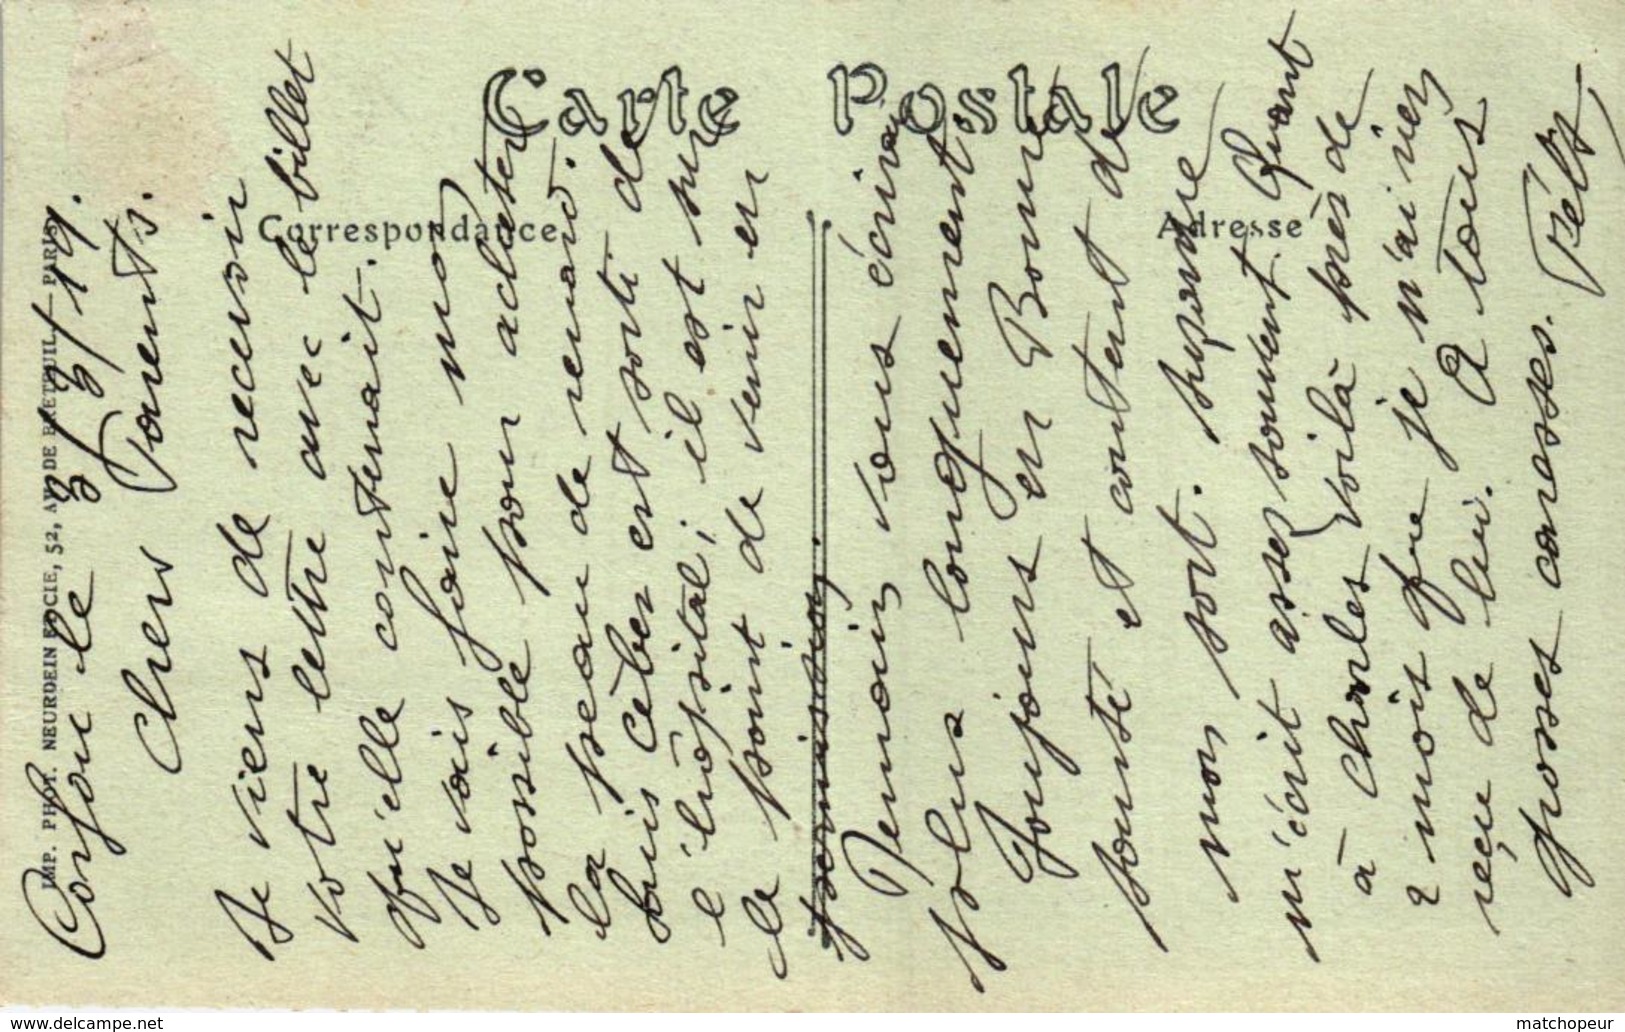 Carte Postale
Correspondance
Adresse
IMP. PHOT. NEURDEIN ET CIE, 52, AV. DE BRETEUIL - PARIS.
Corfou le 3/3/19.
Chers Parents.
Je viens de recevoir
votre lettre avec le billet
qu'elle contenait.
Je vais faire mon
possible pour acheter
la peau de renard.
Puis est sorti de
l'hôpital; il est sur
le point de venir en
permission.
Demain vous écrirai
plus longuement.
Toujours en Bonne
santé et content de
mon sort. Suzanne
m'écrit assez souvent. Quant
à Charles voilà près de
2 mois que je n'ai rien
reçu de lui. A tous
grosses caresses.